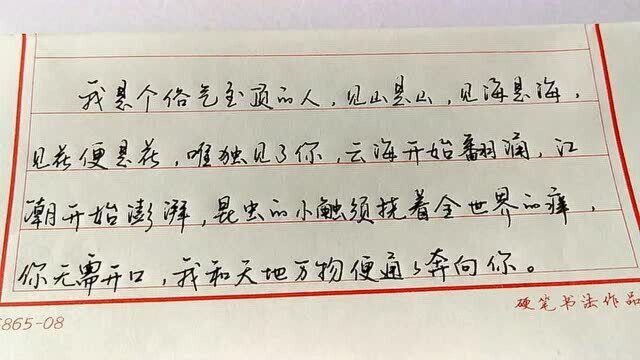 我是个俗气至顶的人，见山是山，见海是海，
见花便是花，唯独见了你，云海开始翻涌，江
潮开始澎湃，昆虫的小触须挠着全世界的痒，
你无需开口，我和天地万物便通通奔向你。
硬笔书法作品
865-08